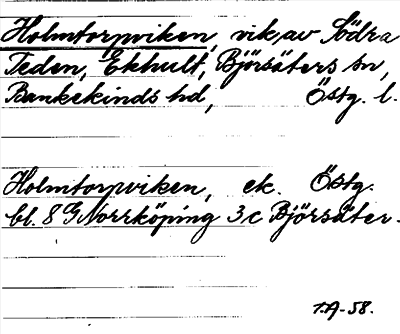 Holmtorpviken, vik, av Södra
Teden, Ekhult, Björsäters sn,
Bankekinds hd, Östg. l.
Holmtorpviken, ek. Östg.
bl. 8 G Norrköping 3 c Björsäter.
T.A-58.